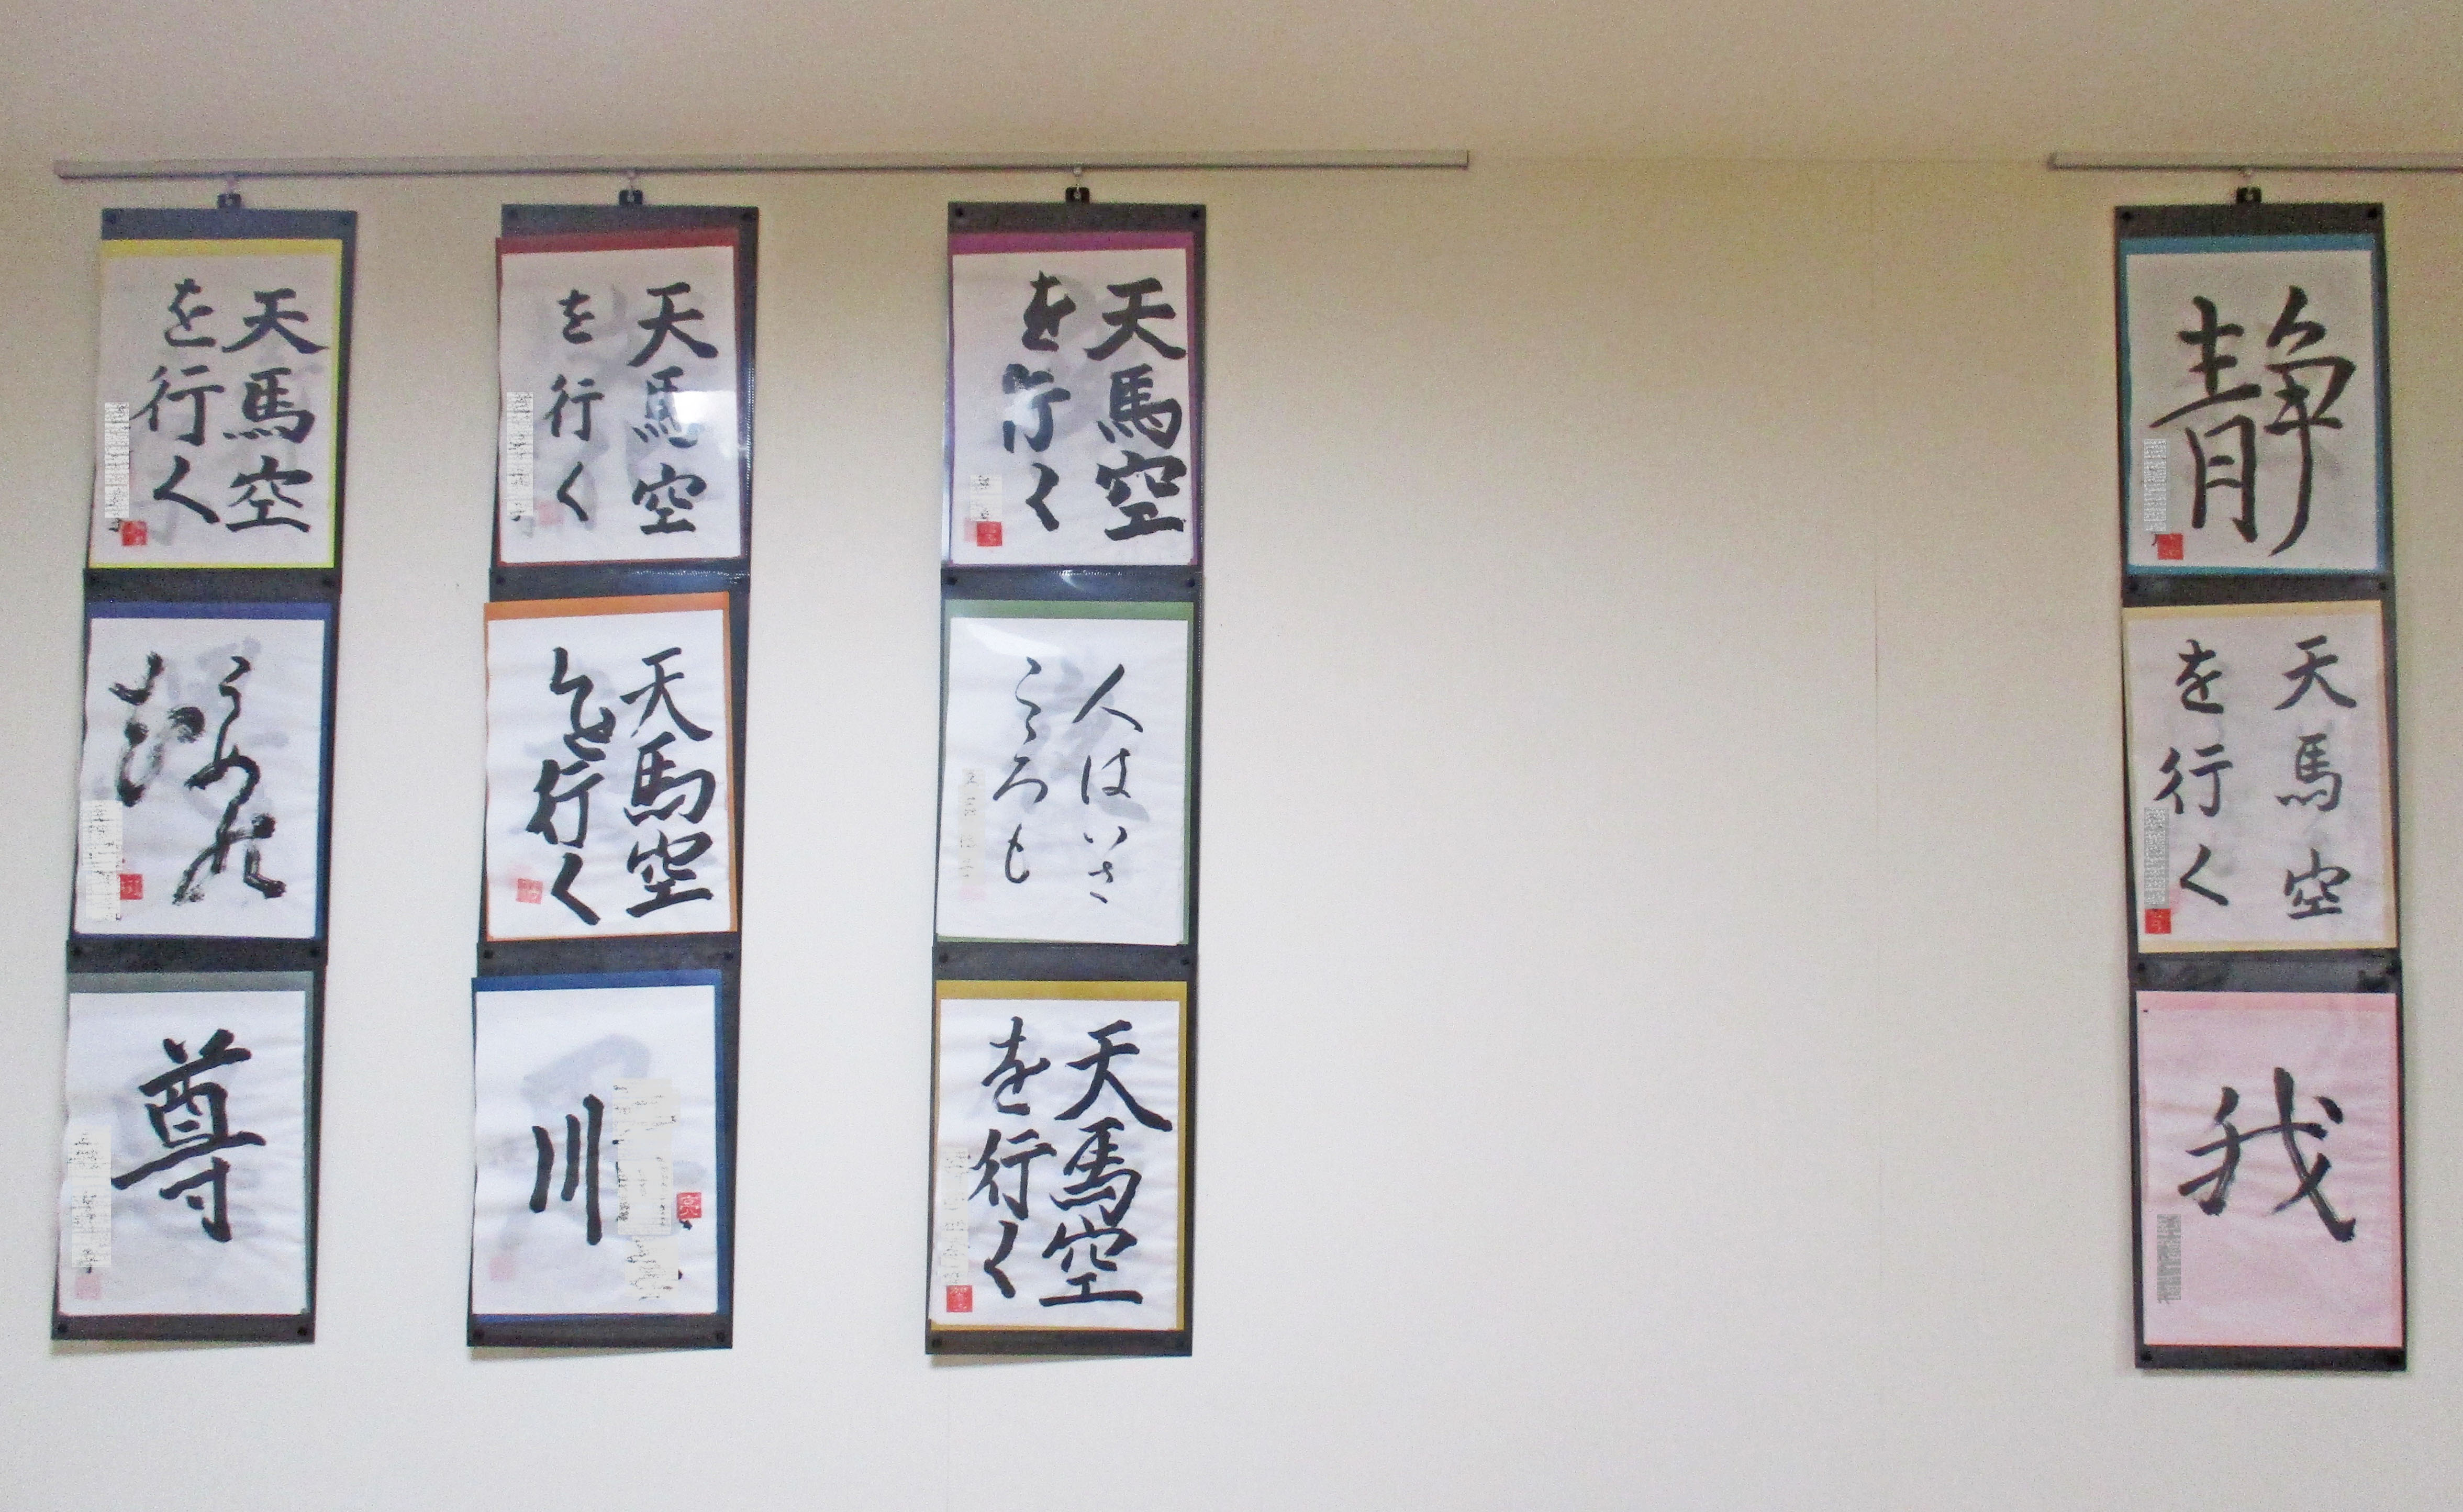 天馬空
を行く
うめ
尊
天馬空
を行く
天馬空
を行く
川
天馬空
を行く
人はいさ
こゝろも
天馬空
を行く
静
天馬空
を行く
我